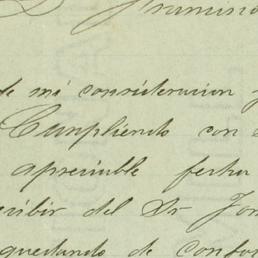 de mi consideracion
Cumpliendo con
apreciable fecha
cibir del Sr
quedando de confor